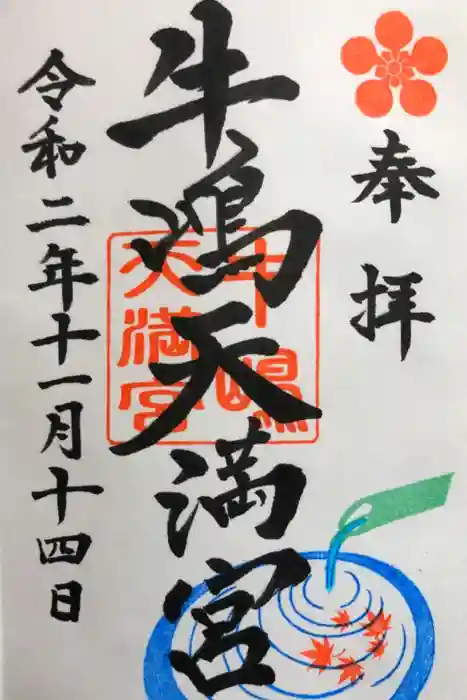 奉拝
牛嶋天満宮
牛嶋
天満宮
令和二年十一月十四日